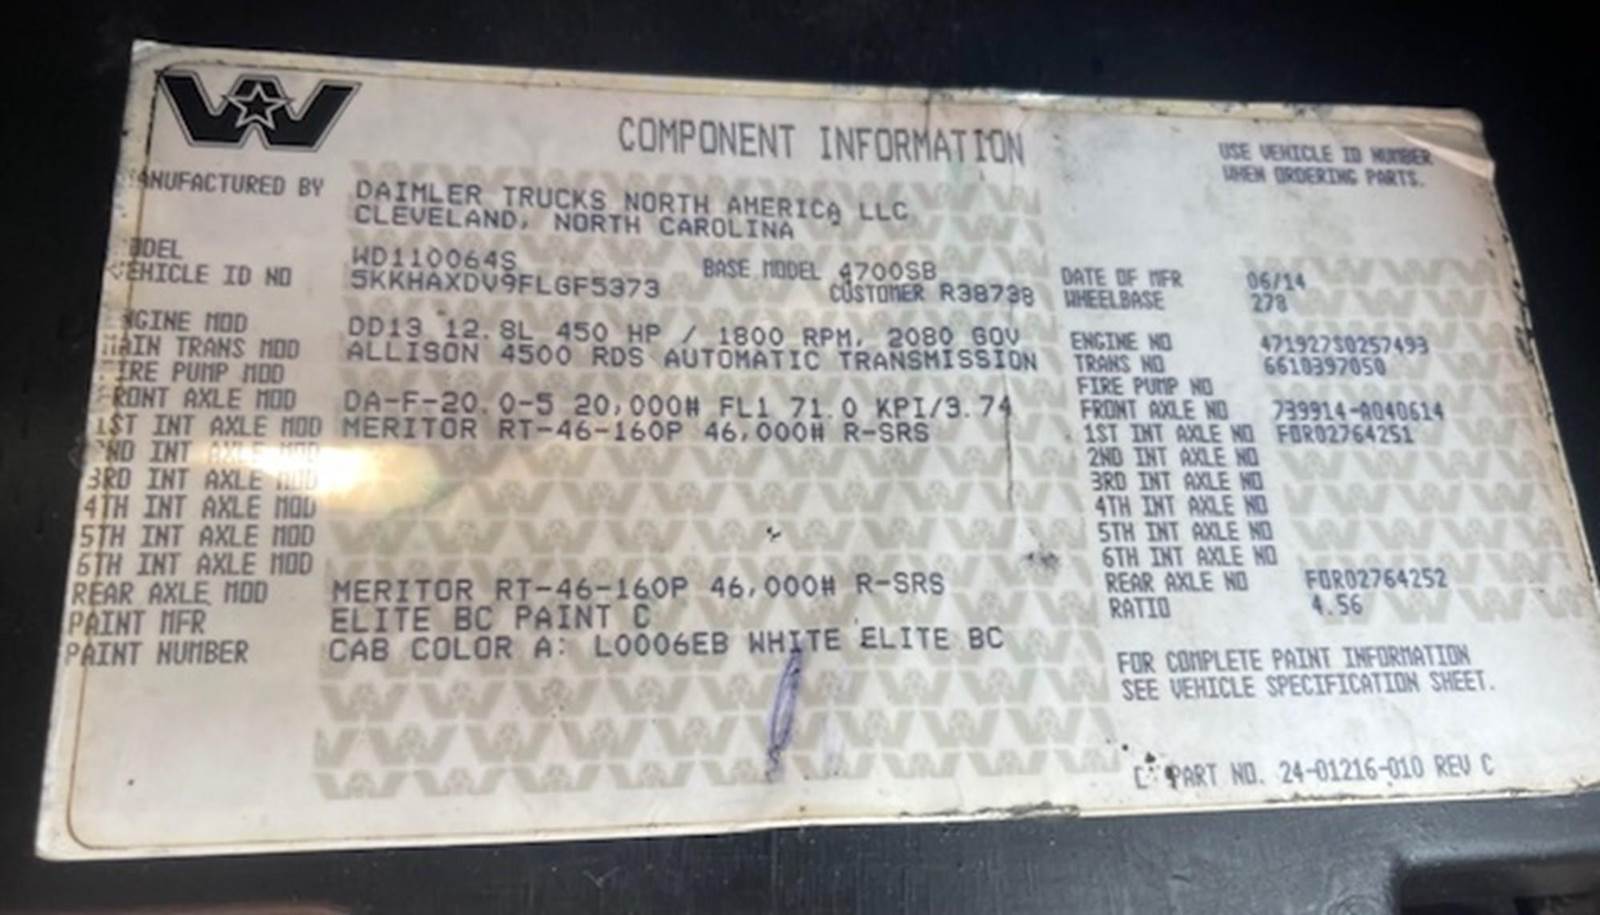 COMPONENT INFORMATION
USE VEHICLE ID NUMBER
WHEN ORDERING PARTS.
MANUFACTURED BY DAIMLER TRUCKS NORTH AMERICA LLC
CLEVELAND, NORTH CAROLINA
MODEL WD110064S BASE MODEL 4700SB
VEHICLE ID NO 5KKHAXDV9FLGF5373 CUSTOMER R38738
DATE OF MFR 06/14
WHEELBASE 278
ENGINE MOD DD13 12.8L 450 HP / 1800 RPM, 2080 GOV
MAIN TRANS MOD ALLISON 4500 RDS AUTOMATIC TRANSMISSION
FIRE PUMP MOD
FRONT AXLE MOD DA-F-20.0-5 20,000# FL1 71.0 KPI/3.74
1ST INT AXLE MOD MERITOR RT-46-160P 46,000# R-SRS
2ND INT AXLE MOD
3RD INT AXLE MOD
4TH INT AXLE MOD
5TH INT AXLE MOD
6TH INT AXLE MOD
REAR AXLE MOD MERITOR RT-46-160P 46,000# R-SRS
PAINT MFR ELITE BC PAINT C
PAINT NUMBER CAB COLOR A: L0006EB WHITE ELITE BC
ENGINE NO 471927S0257493
TRANS NO 6610397050
FIRE PUMP NO
FRONT AXLE NO 739914-A040614
1ST INT AXLE NO FOR02764251
2ND INT AXLE NO
3RD INT AXLE NO
4TH INT AXLE NO
5TH INT AXLE NO
6TH INT AXLE NO
REAR AXLE NO FOR02764252
RATIO 4.56
FOR COMPLETE PAINT INFORMATION
SEE VEHICLE SPECIFICATION SHEET.
PART NO. 24-01216-010 REV C